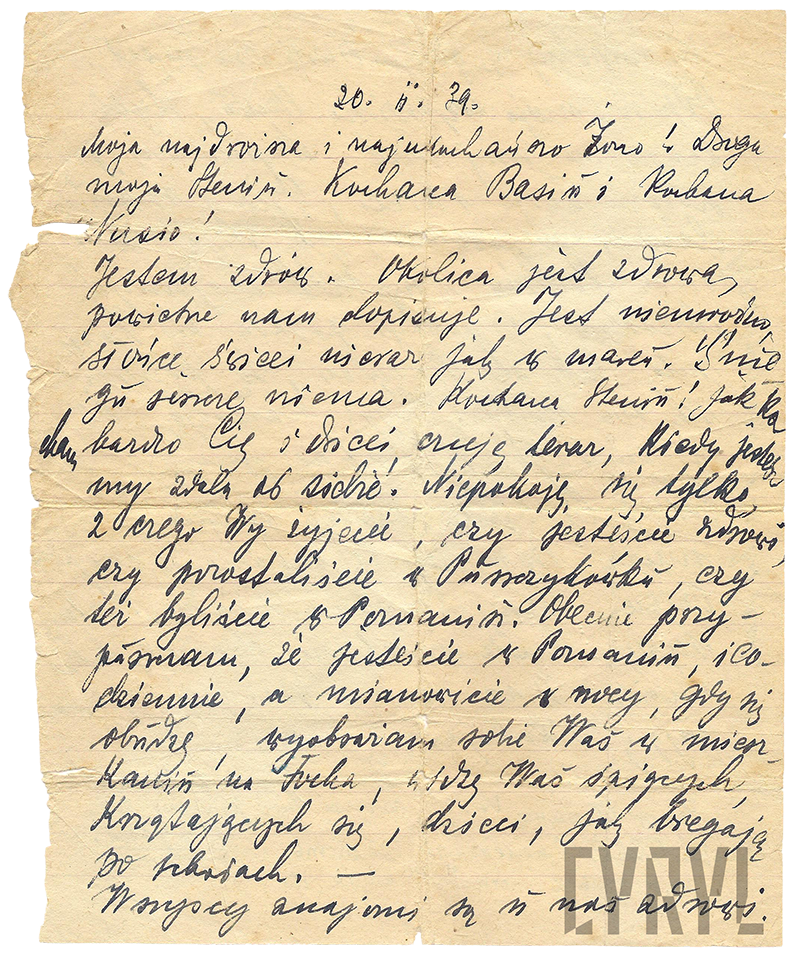 20. II. 39.
Moja najdroższa i najukochańszo Żono! Droga
moja Steniu. Kochana Basiu i Kochana
Nusio!
Jestem zdrów. Okolica jest zdrowa,
powietrze nam dopisuje. Jest niemroźno,
słońce świeci nieraz jak w marcu. Śnie
gu jeszcze niema. Kochana Steniu! Jak ko
cham bardzo Cię i dzieci, czuję teraz, kiedy jesteś-
my zdala od siebie. Niepokoję się tylko,
z czego Wy żyjecie, czy jesteście zdrowi,
czy pozostaliście w Puszczykówku, czy
też byliście w Poznaniu. Obecnie przy-
puszczam, że jesteście w Poznaniu, i co-
dziennie, a mianowicie w nocy, gdy się
obudzę, wyobrażam sobie Was w miesz-
kaniu na Focha, widzę Was śpiących,
krzątających się, dzieci, jak biegają
po schodach. —
Wszyscy znajomi są u nas zdrowi.
CYRYL